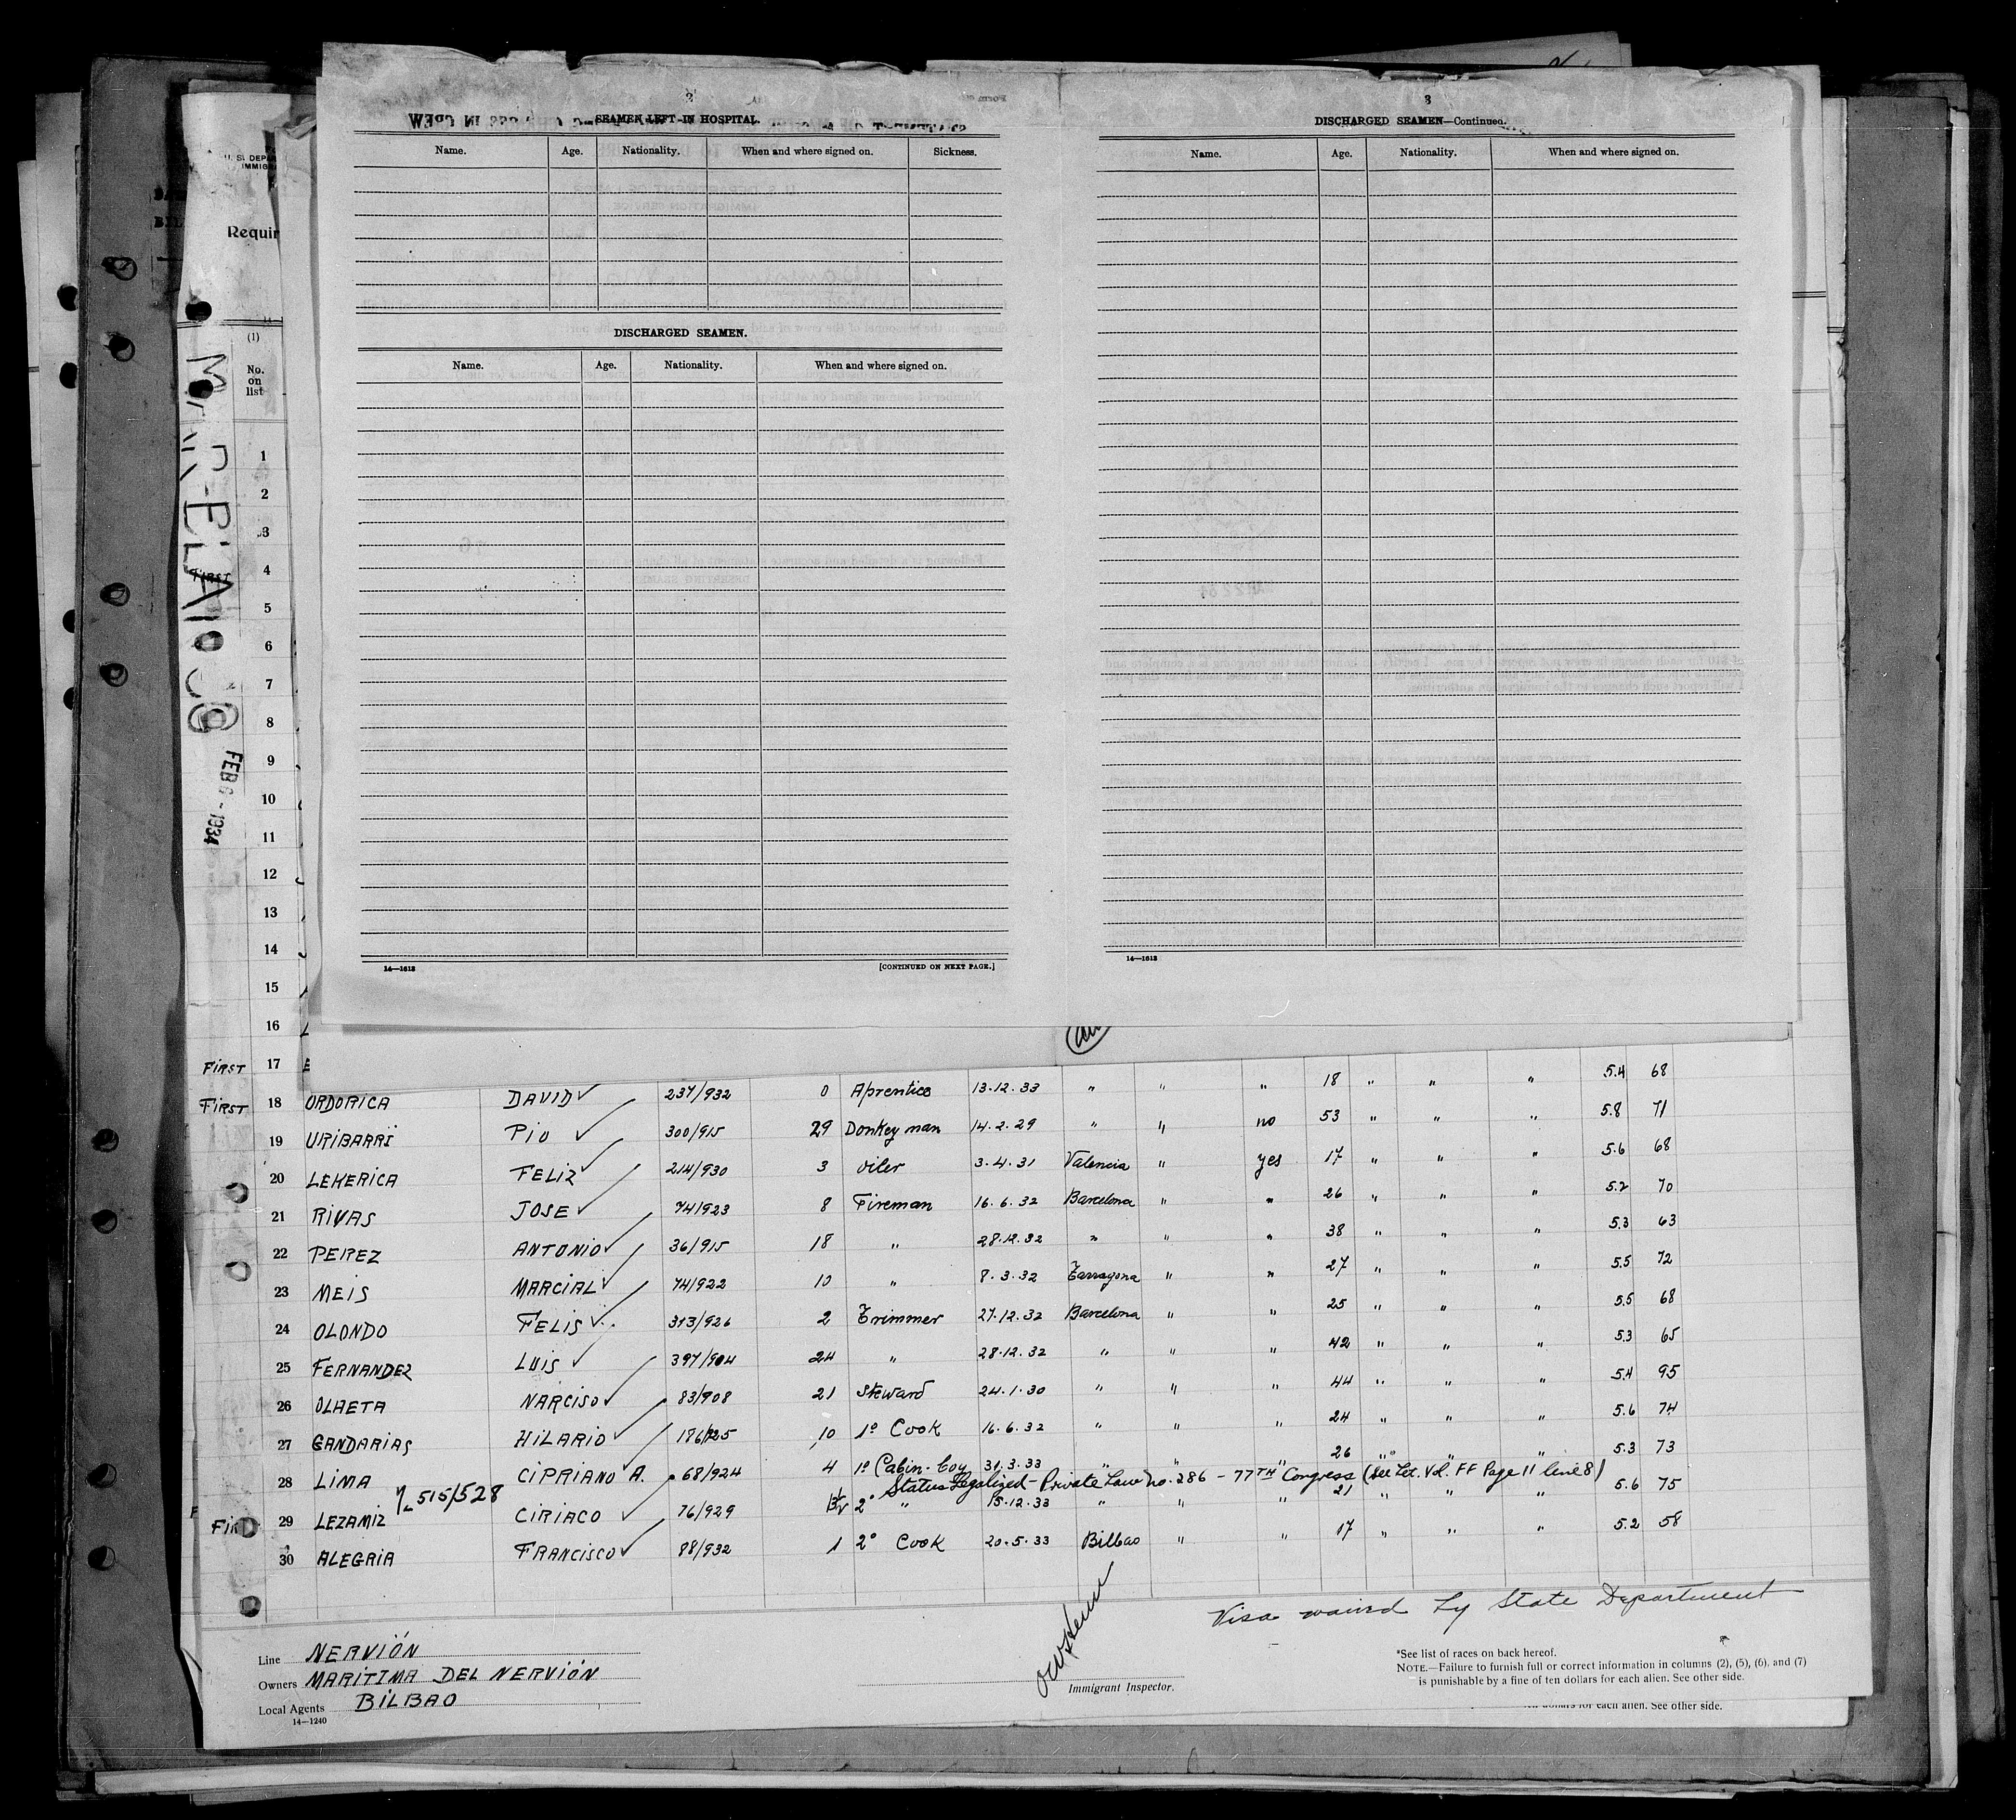 2
SEAMEN LEFT IN HOSPITAL.
Name. Age. Nationality. When and where signed on. Sickness.
DISCHARGED SEAMEN.
Name. Age. Nationality. When and where signed on.
14—1613 [CONTINUED ON NEXT PAGE.]
3
DISCHARGED SEAMEN—Continued.
Name. Age. Nationality. When and where signed on.
14—1613
U. S. DEPAR
IMMIG
Requir
(1)
No. on list
FIRST
FEB
1934
1
2
3
4
5
6
7
8
9
10
11
12
13
14
15
16
FIRST 17
FIRST 18 ORDORICA DAVID 237/932 0 Aprentice 13.12.33 " " " 18 " " " 5.4 68
19 URIBARRI PIO 300/915 29 Donkey man 14.2.29 " " no 53 " " " 5.8 71
20 LEKERICA FELIZ 214/930 3 oiler 3.4.31 Valencia " yes 17 " " " 5.6 68
21 RIVAS JOSE 74/923 8 Fireman 16.6.32 Barcelona " " 26 " " " 5.2 70
22 PEREZ ANTONIO 36/915 18 " 28.12.32 " " " 38 " " " 5.3 63
23 MEIS MARCIAL 74/922 10 " 8.3.32 Tarragona " " 27 " " " 5.5 72
24 OLONDO FELIS 313/926 2 Trimmer 27.12.32 Barcelona " " 25 " " " 5.5 68
25 FERNANDEZ LUIS 397/904 24 " 28.12.32 " " " 42 " " " 5.3 65
26 OLAETA NARCISO 83/908 21 Steward 24.1.30 " " " 44 " " " 5.4 95
27 GANDARIAS HILARIO 186/925 10 1º Cook 16.6.32 " " " 24 " " " 5.6 74
28 LIMA CIPRIANO A. 68/924 4 1º Cabin-boy 31.3.33 " " " 26 " " " 5.3 73
515/528 Status Legalized - Private Law no. 286 - 77TH Congress (See Let. Vol. FF Page 11 line 8)
29 LEZAMIZ CIRIACO 76/929 2º " 15.12.33 " " " 21 " " " 5.6 75
30 ALEGRIA FRANCISCO 88/932 1 2º Cook 20.5.33 Bilbao " " 17 " " " 5.2 58
Visa waived by State Department
Line NERVIÓN
Owners MARITIMA DEL NERVIÓN
Local Agents BILBAO
14—1240
Immigrant Inspector.
*See list of races on back hereof.
NOTE.—Failure to furnish full or correct information in columns (2), (5), (6), and (7)
is punishable by a fine of ten dollars for each alien. See other side.
dollars for each alien. See other side.